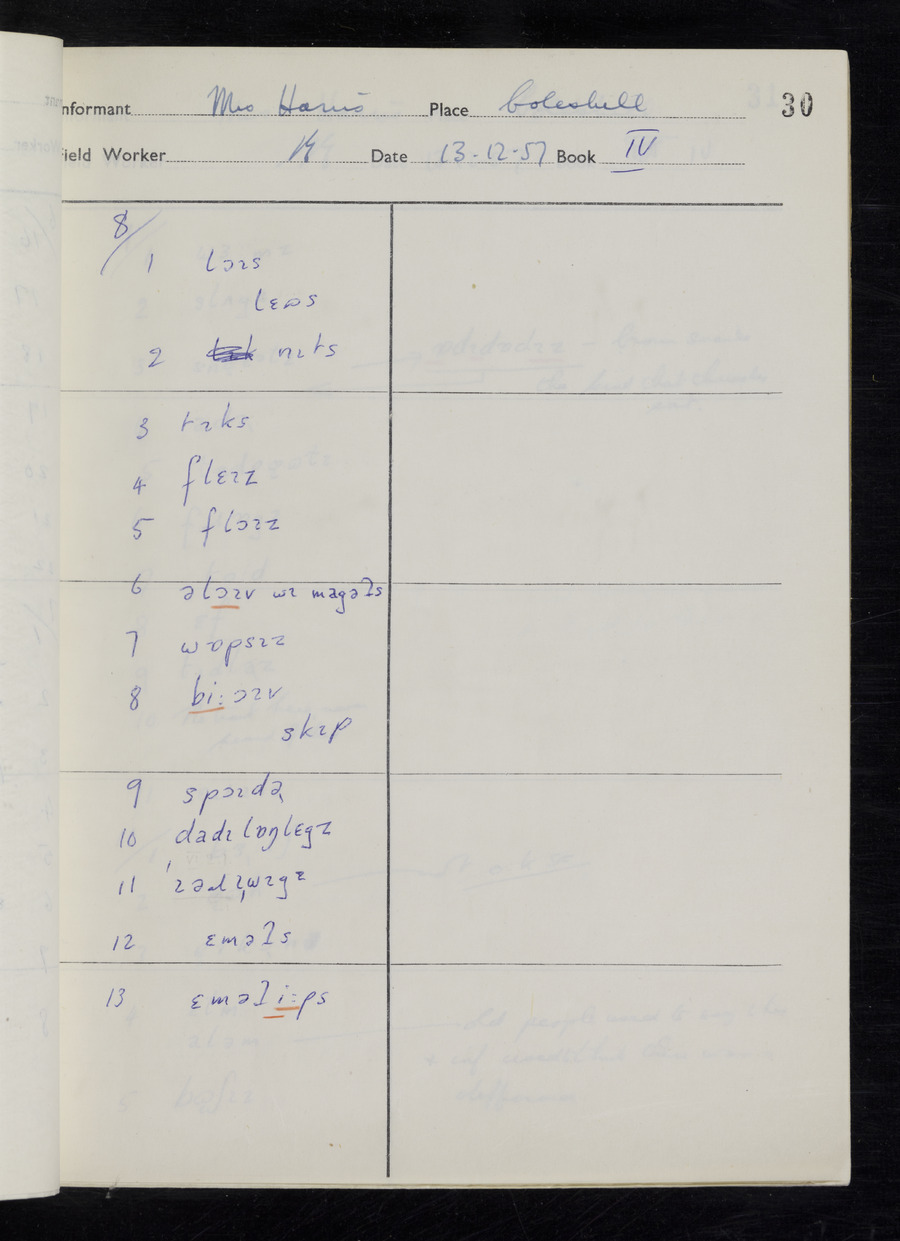 Informant Mrs Harris Place Coleshill 30
Field Worker Date 13-12-57 Book IV
8/
1 lɔɪs
lɛɒs
2 nɪts
3 tɪks
4 flɛɪz
5 flɔɪz
6 əlɔɪv wɪ magəʔs
7 wɒpsɪz
8 bi:ɔɪv
skɪp
9 spɔɪdə
10 dadɪlɒŋlɛgz
11 ˈɪəɹɪˌwɪgz
12 ɛməʔs
13 ɛməʔi:ps